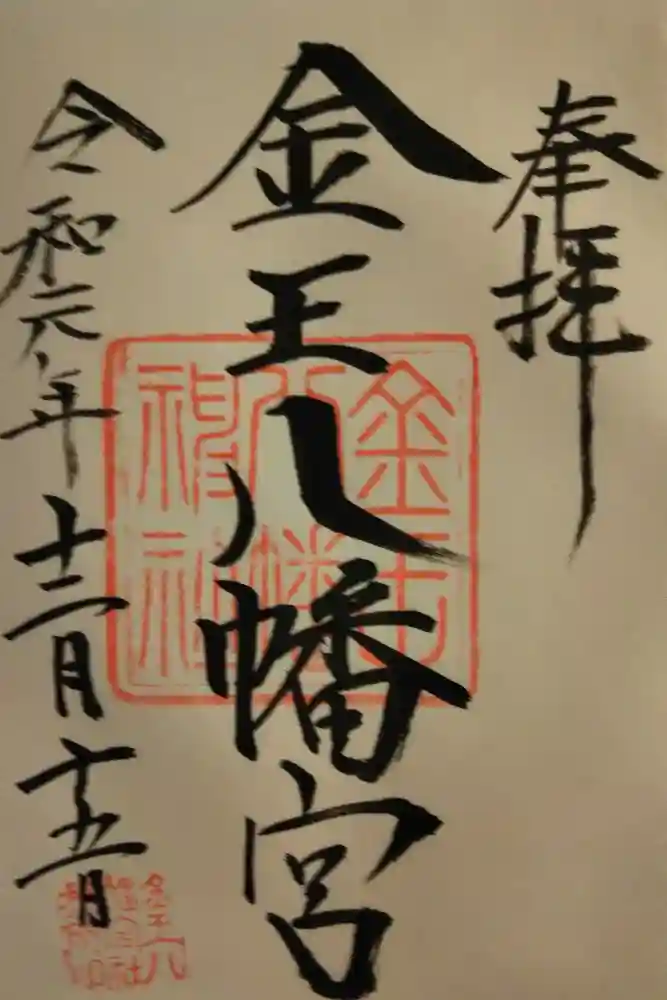 奉拝
金王八幡宮
令和元年十二月十五日
金王
八幡
神社